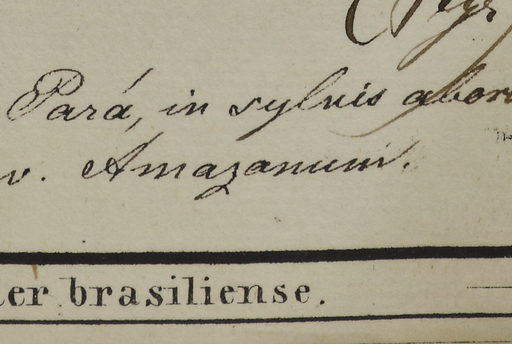 Pará, in sylvis abor
v. Amazanum.
ter brasiliense.